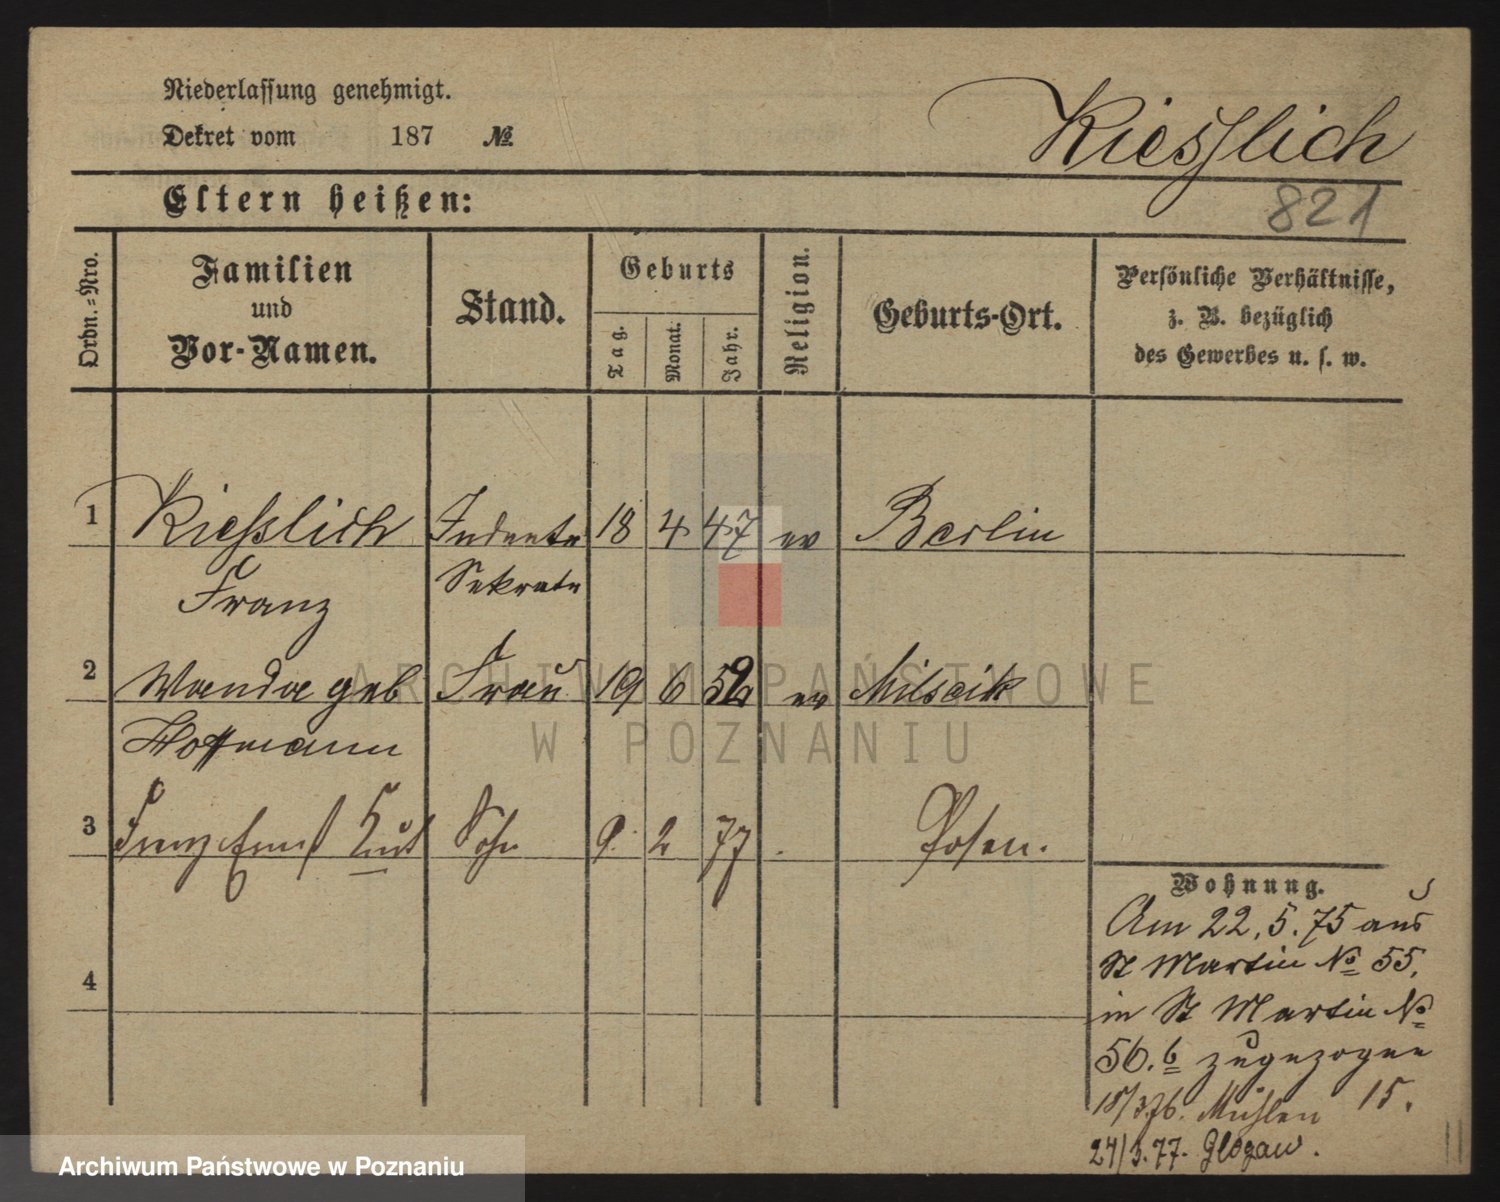 Niederlassung genehmigt.
Dekret vom 187 №
Kiesslich
821
Eltern heißen:
Ordn.=Nro.
Familien
und
Vor-Namen.
Stand.
Geburts
Tag.
Monat.
Jahr.
Religion.
Geburts-Ort.
Persönliche Verhältnisse,
z. B. bezüglich
des Gewerbes u. s. w.
1 Kiesslich 18 4 47 ev Berlin
Franz Sekretr
2 Wanda geb Frau 19 6 ev Milscik
Hoffmann
3 Franz Ernst Sohn 9. 2 77 Posen.
4
Wohnung.
Am 22.5.75 aus
St Martin № 55.
in St Martin №
56.6 zugezogen
Mühlen 15.
24/3.77. Glogau.
ARCHIWUM PAŃSTWOWE
W POZNANIU
Archiwum Państwowe w Poznaniu